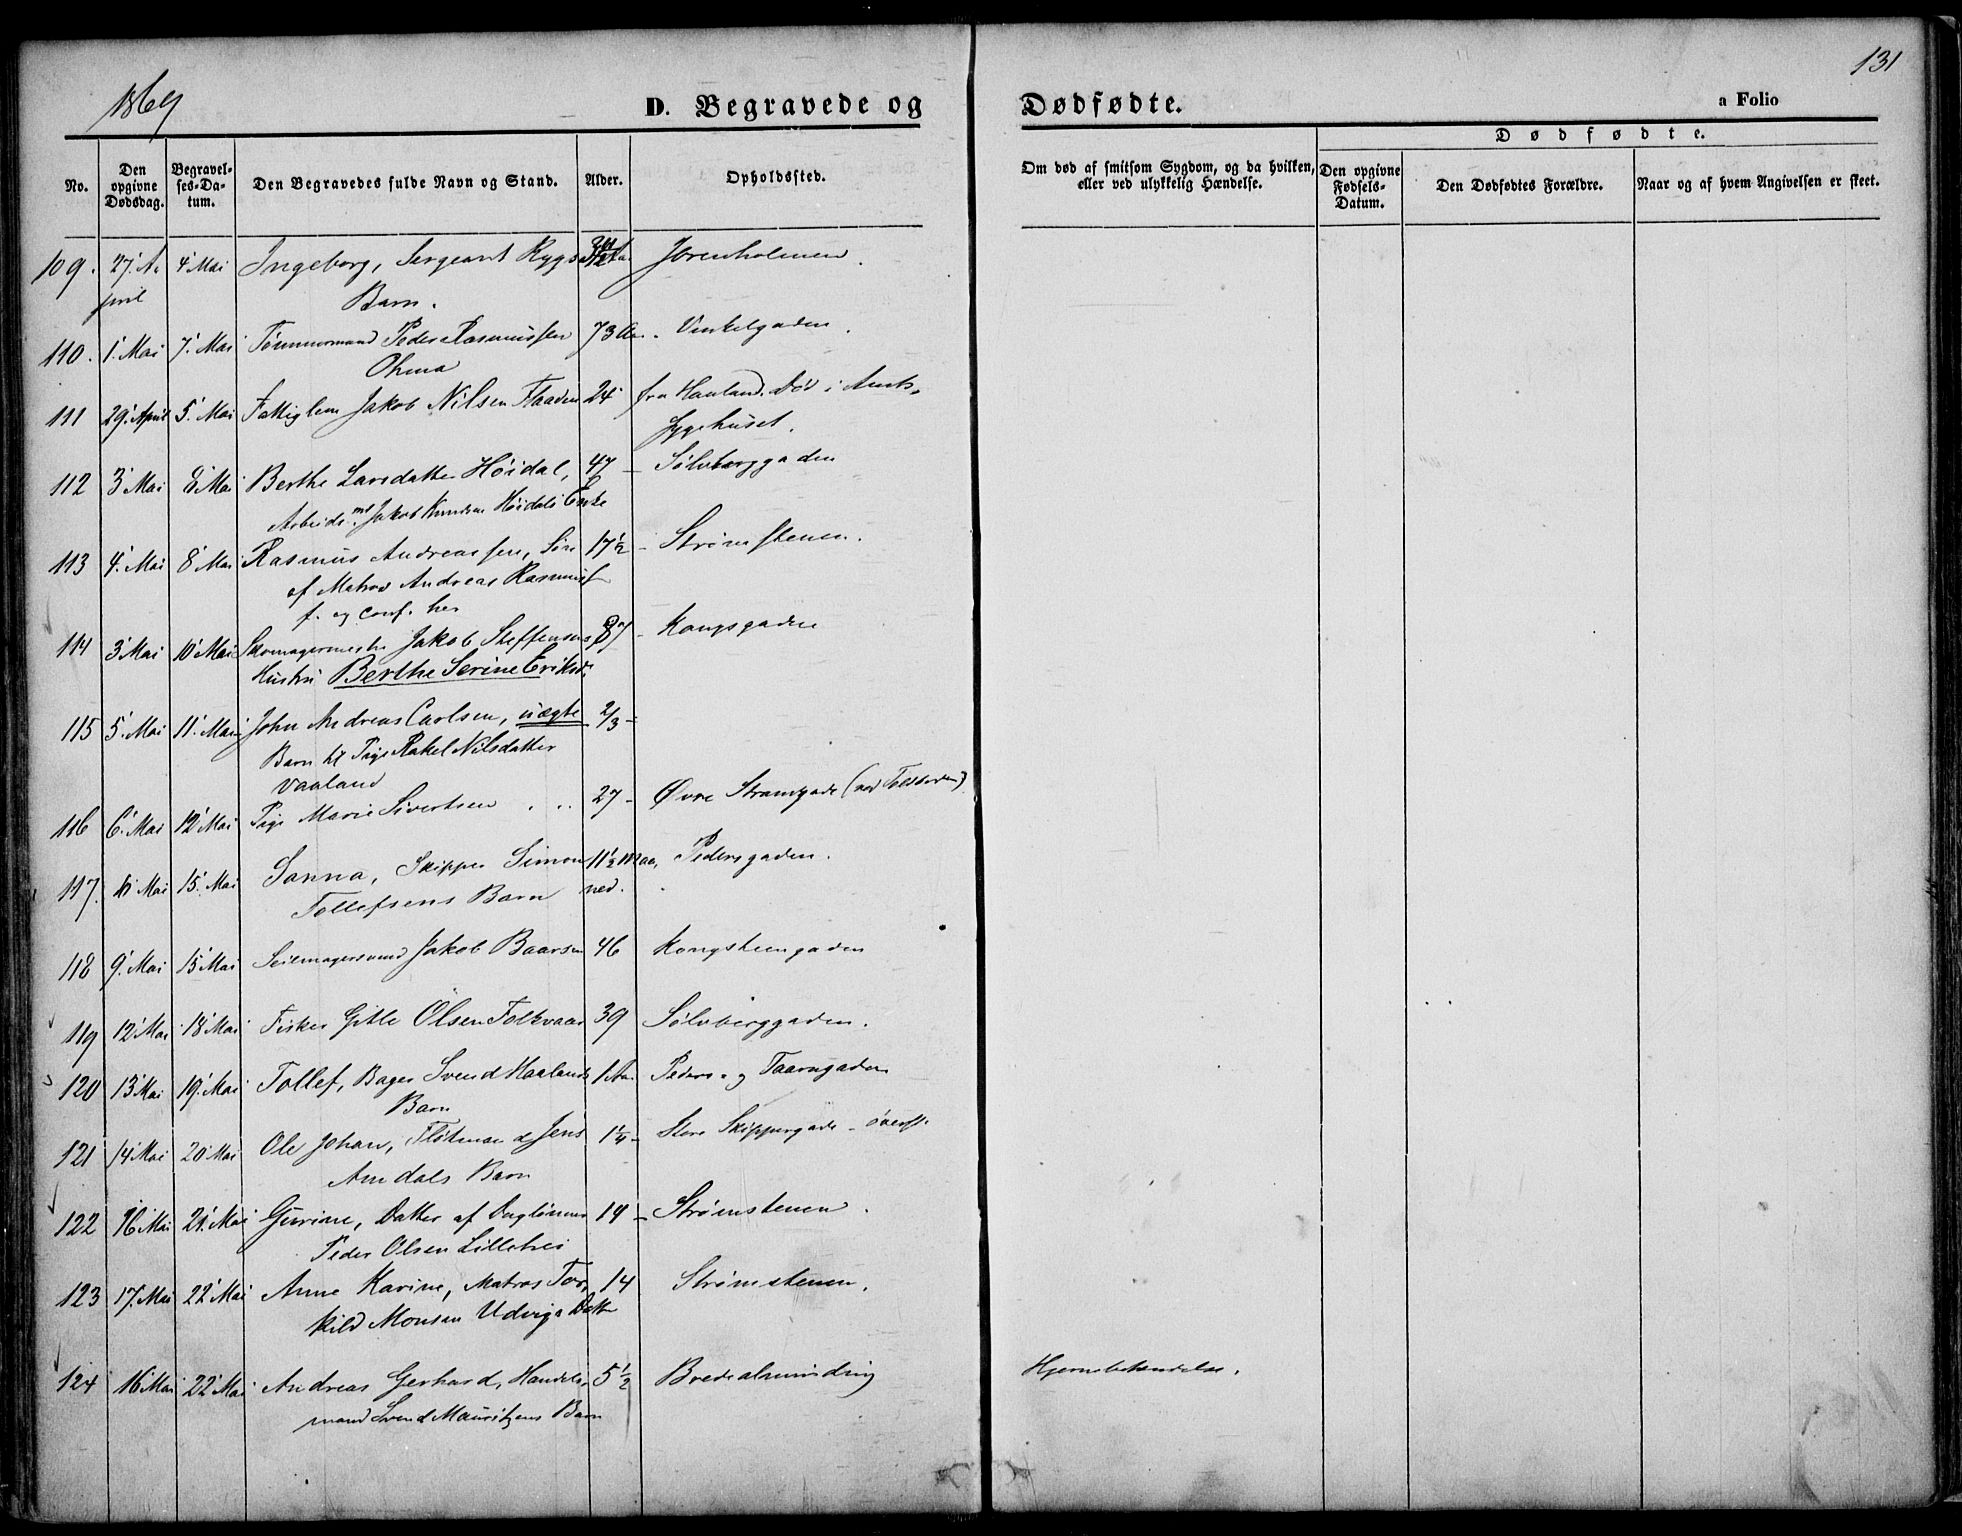 1869
D. Begravede og Dødfødte.
a Folio
131
No.
Den opgivne Dødsdag.
Begravelses-Datum.
Den Begravedes fulde Navn og Stand.
Alder.
Opholdssted.
Om død af smitsom Sygdom, og da hvilken,
eller ved ulykkelig Hændelse.
Dødfødte.
Den opgivne Fødsels-Datum.
Den Dødfødtes Forældre.
Naar og af hvem Angivelsen er skeet.
109. 27. A- 4 Mai Ingeborg, Sergeant Rygs Jorenholmen
pril Barn.
110. 1. Mai 7. Mai Tømmermand Peder Rasmussen 73 Aar. Vinkelgaden.
Ohma
111 29. April 5. Mai Fattiglem Jakob Nilsen Flaaden 24 fra Haaland. Død i Amts-
sygehuset.
112 3 Mai 8 Mai Berthe Larsdatter Høidal, 47 - Sølvberggaden
Arbeidsmd. Jakob Knudsen Høidals Enke
113 4. Mai 8 Mai Rasmus Andreassen, Søn 17½ - Strømstenen.
af Matros Andreas Rasmuss
f. og conf. her
114 3 Mai 10 Mai Skomagermester Jakob Steffensens Kongsgaden
Hustru Berthe Serine Eriksd.
115 5. Mai 11. Mai John Andreas Carlsen, uægte 2/3 -
Barn til Pige Rakel Nilsdatter
Vaaland
116 6. Mai 12 Mai Pige Marie Sivertsen 27 - Øvre Strandgade (ved Toldboden)
117. 11 Mai 15. Mai Sanna, Skipper Simon 11½ Maa- Pedersgaden.
Tollefsens Barn ned.
118 9. Mai 15 Mai Seilmagersvend Jakob Baarsen 46 Kongsteengaden
119 12 Mai 18 Mai Fisker Gitle Olsen Folkvaar 39 Sølvberggaden.
120 13 Mai 19. Mai Tollef, Bager Svend Haalands 1 Aar Peders- og Taarngaden
Barn
121 14 Mai 20 Mai Ole Johan, Fløtmand Jens 1¼ - Store Skippergade - øverst.
Amdals Barn
122 16 Mai 21. Mai Gurine, Datter af Dagløner 14 - Strømstenen.
Peder Olsen Lillehei
123 17. Mai 22 Mai Anne Karine, Matros Tor- 14 Strømstenen.
kild Monsen Udvigs Datter
124 16 Mai 22 Mai Andreas Gerhard, Handels- 5½ Bredealmending Hjernebetændelse.
mand Svend Mauritzens Barn